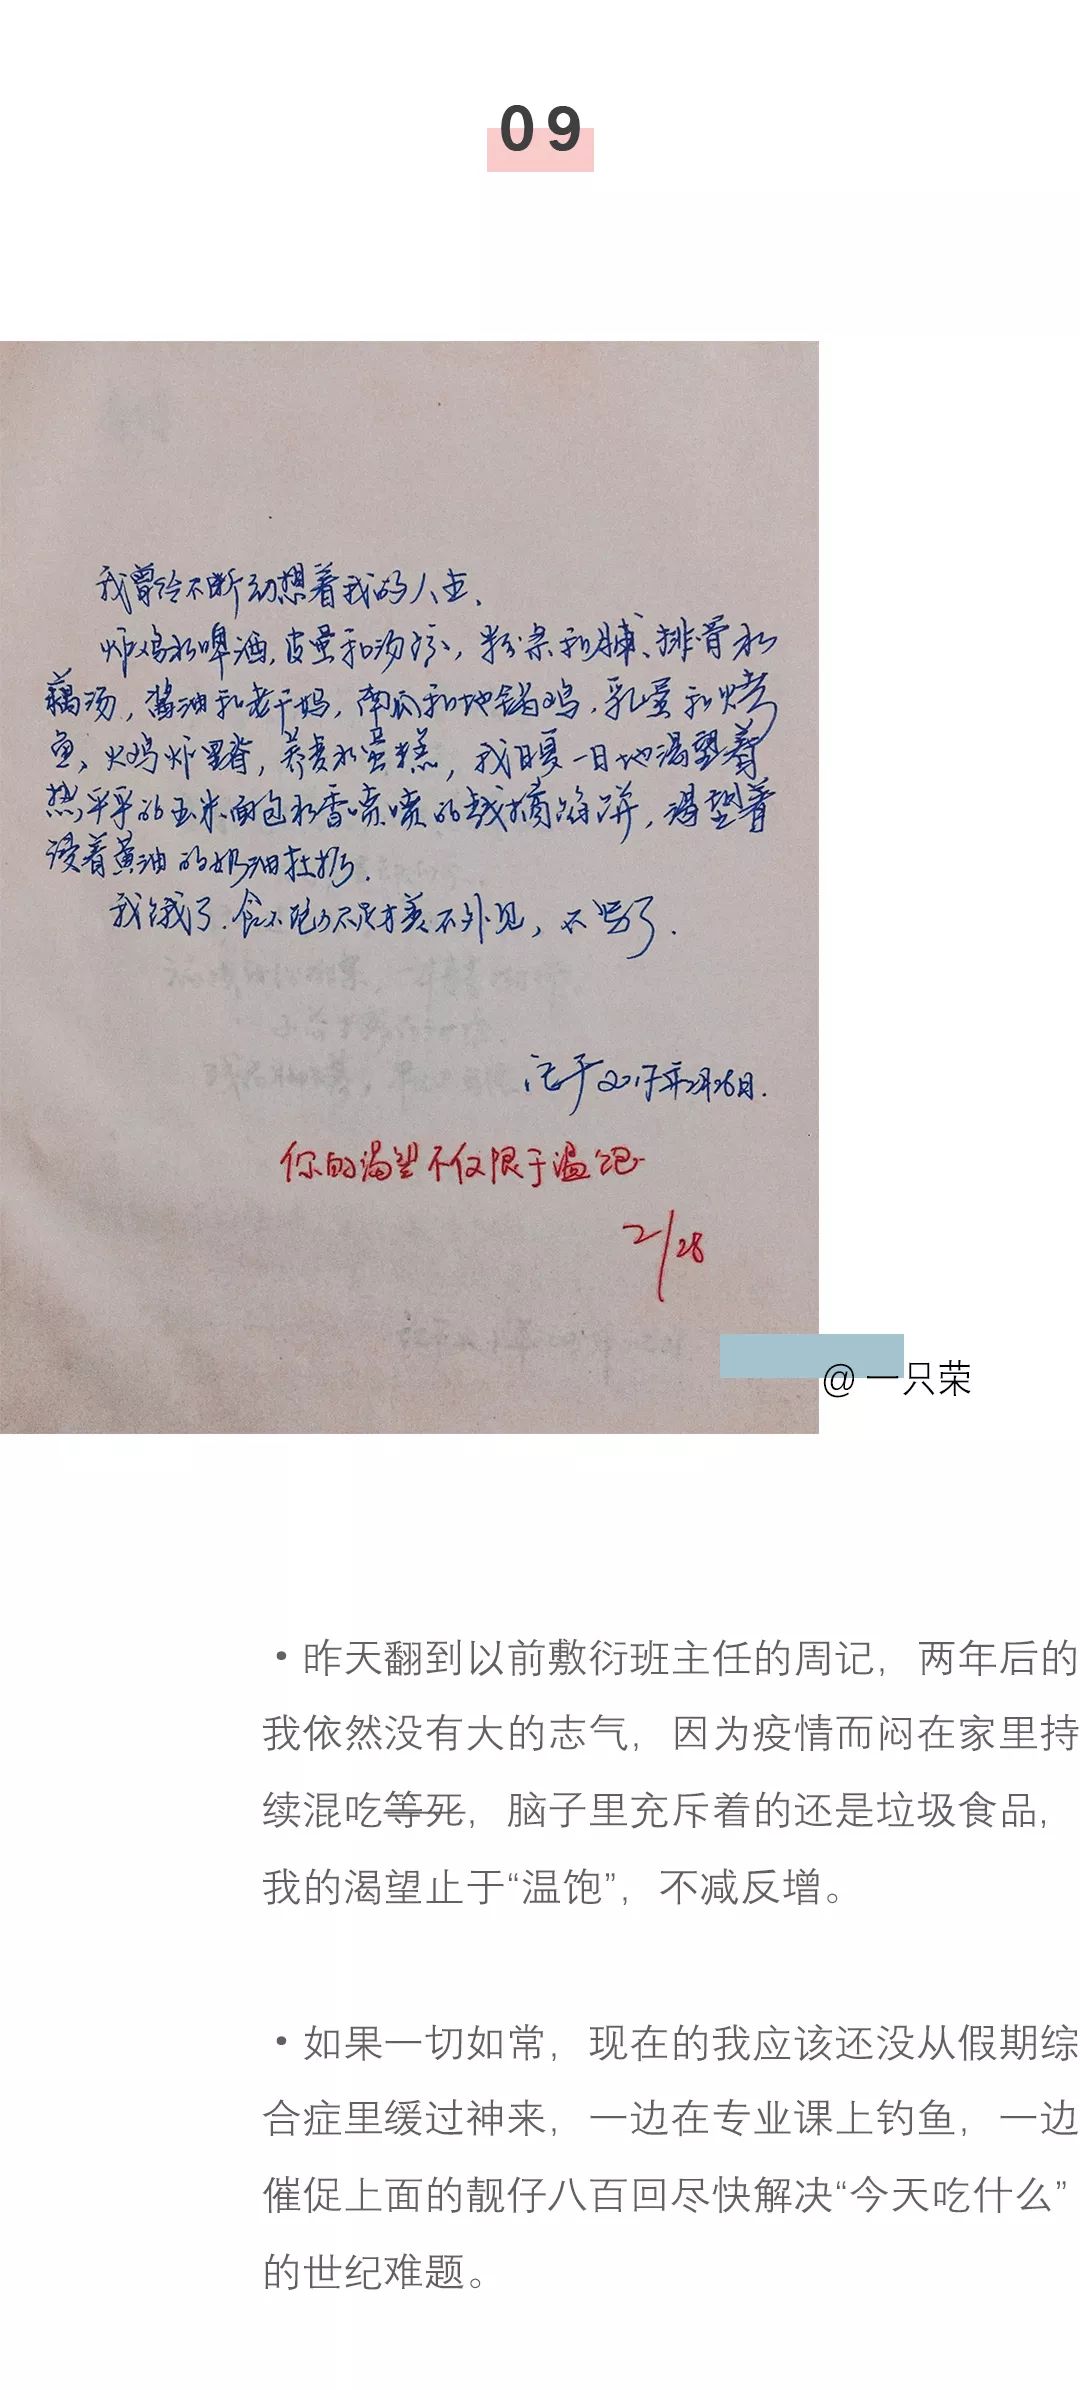 09
我曾经不断幻想着我的人生、
炸鸡和啤酒,皮蛋和汤,粉条和脯、排骨和
藕汤,酱油和老干妈,南瓜和地锅鸡,乳蛋和烤
鱼、火鸡炸里脊,荞麦和蛋糕,我日复一日地渴望着
热乎乎的玉米面包和香喷喷的馅饼,渴望着
浸着黄油的奶油
我饿了.食不饱力不足才美不外见,不写了.
记于2017年2月26日.
你的渴望不仅限于温饱
2/28
@一只荣
·昨天翻到以前敷衍班主任的周记,两年后的
我依然没有大的志气,因为疫情而闷在家里持
续混吃等死,脑子里充斥着的还是垃圾食品,
我的渴望止于“温饱”,不减反增。
·如果一切如常,现在的我应该还没从假期综
合症里缓过神来,一边在专业课上钓鱼,一边
催促上面的靓仔八百回尽快解决“今天吃什么”
的世纪难题。